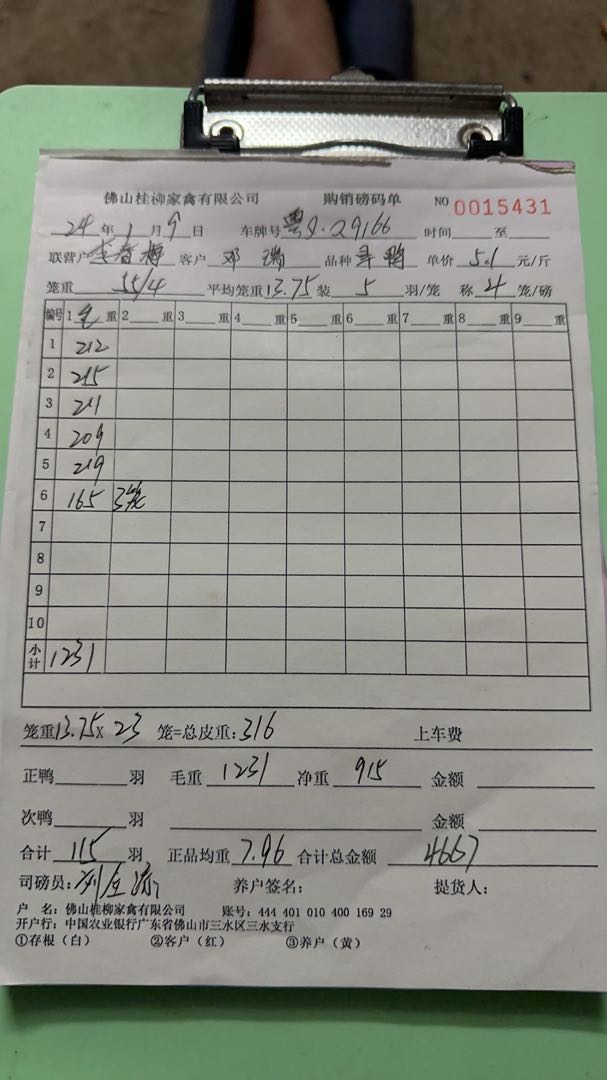 佛山桂柳家禽有限公司 购销磅码单 NO 0015431
24年1月9日 车牌号 粤 29166 时间 至
联营户 李春梅 客户 邓瑞 品种 鸭 单价 5.1 元/斤
笼重 55/4 平均笼重 13.75 装 5 羽/笼 称 4 笼/磅
编号 1 毛 重 2 重 3 重 4 重 5 重 6 重 7 重 8 重 9 重
1 212
2 215
3 211
4 209
5 219
6 165 3笼
7
8
9
10
小计 1231
笼重13.75X 23 笼=总皮重:316 上车费
正鸭 羽 毛重 1231 净重 915 金额
次鸭 羽 金额
合计 115 羽 正品均重 7.96 合计总金额 4667
司磅员: 养户签名: 提货人:
户 名: 佛山桂柳家禽有限公司 账号: 444 401 010 400 169 29
开户行: 中国农业银行广东省佛山市三水区三水支行
①存根(白) ②客户(红) ③养户(黄)